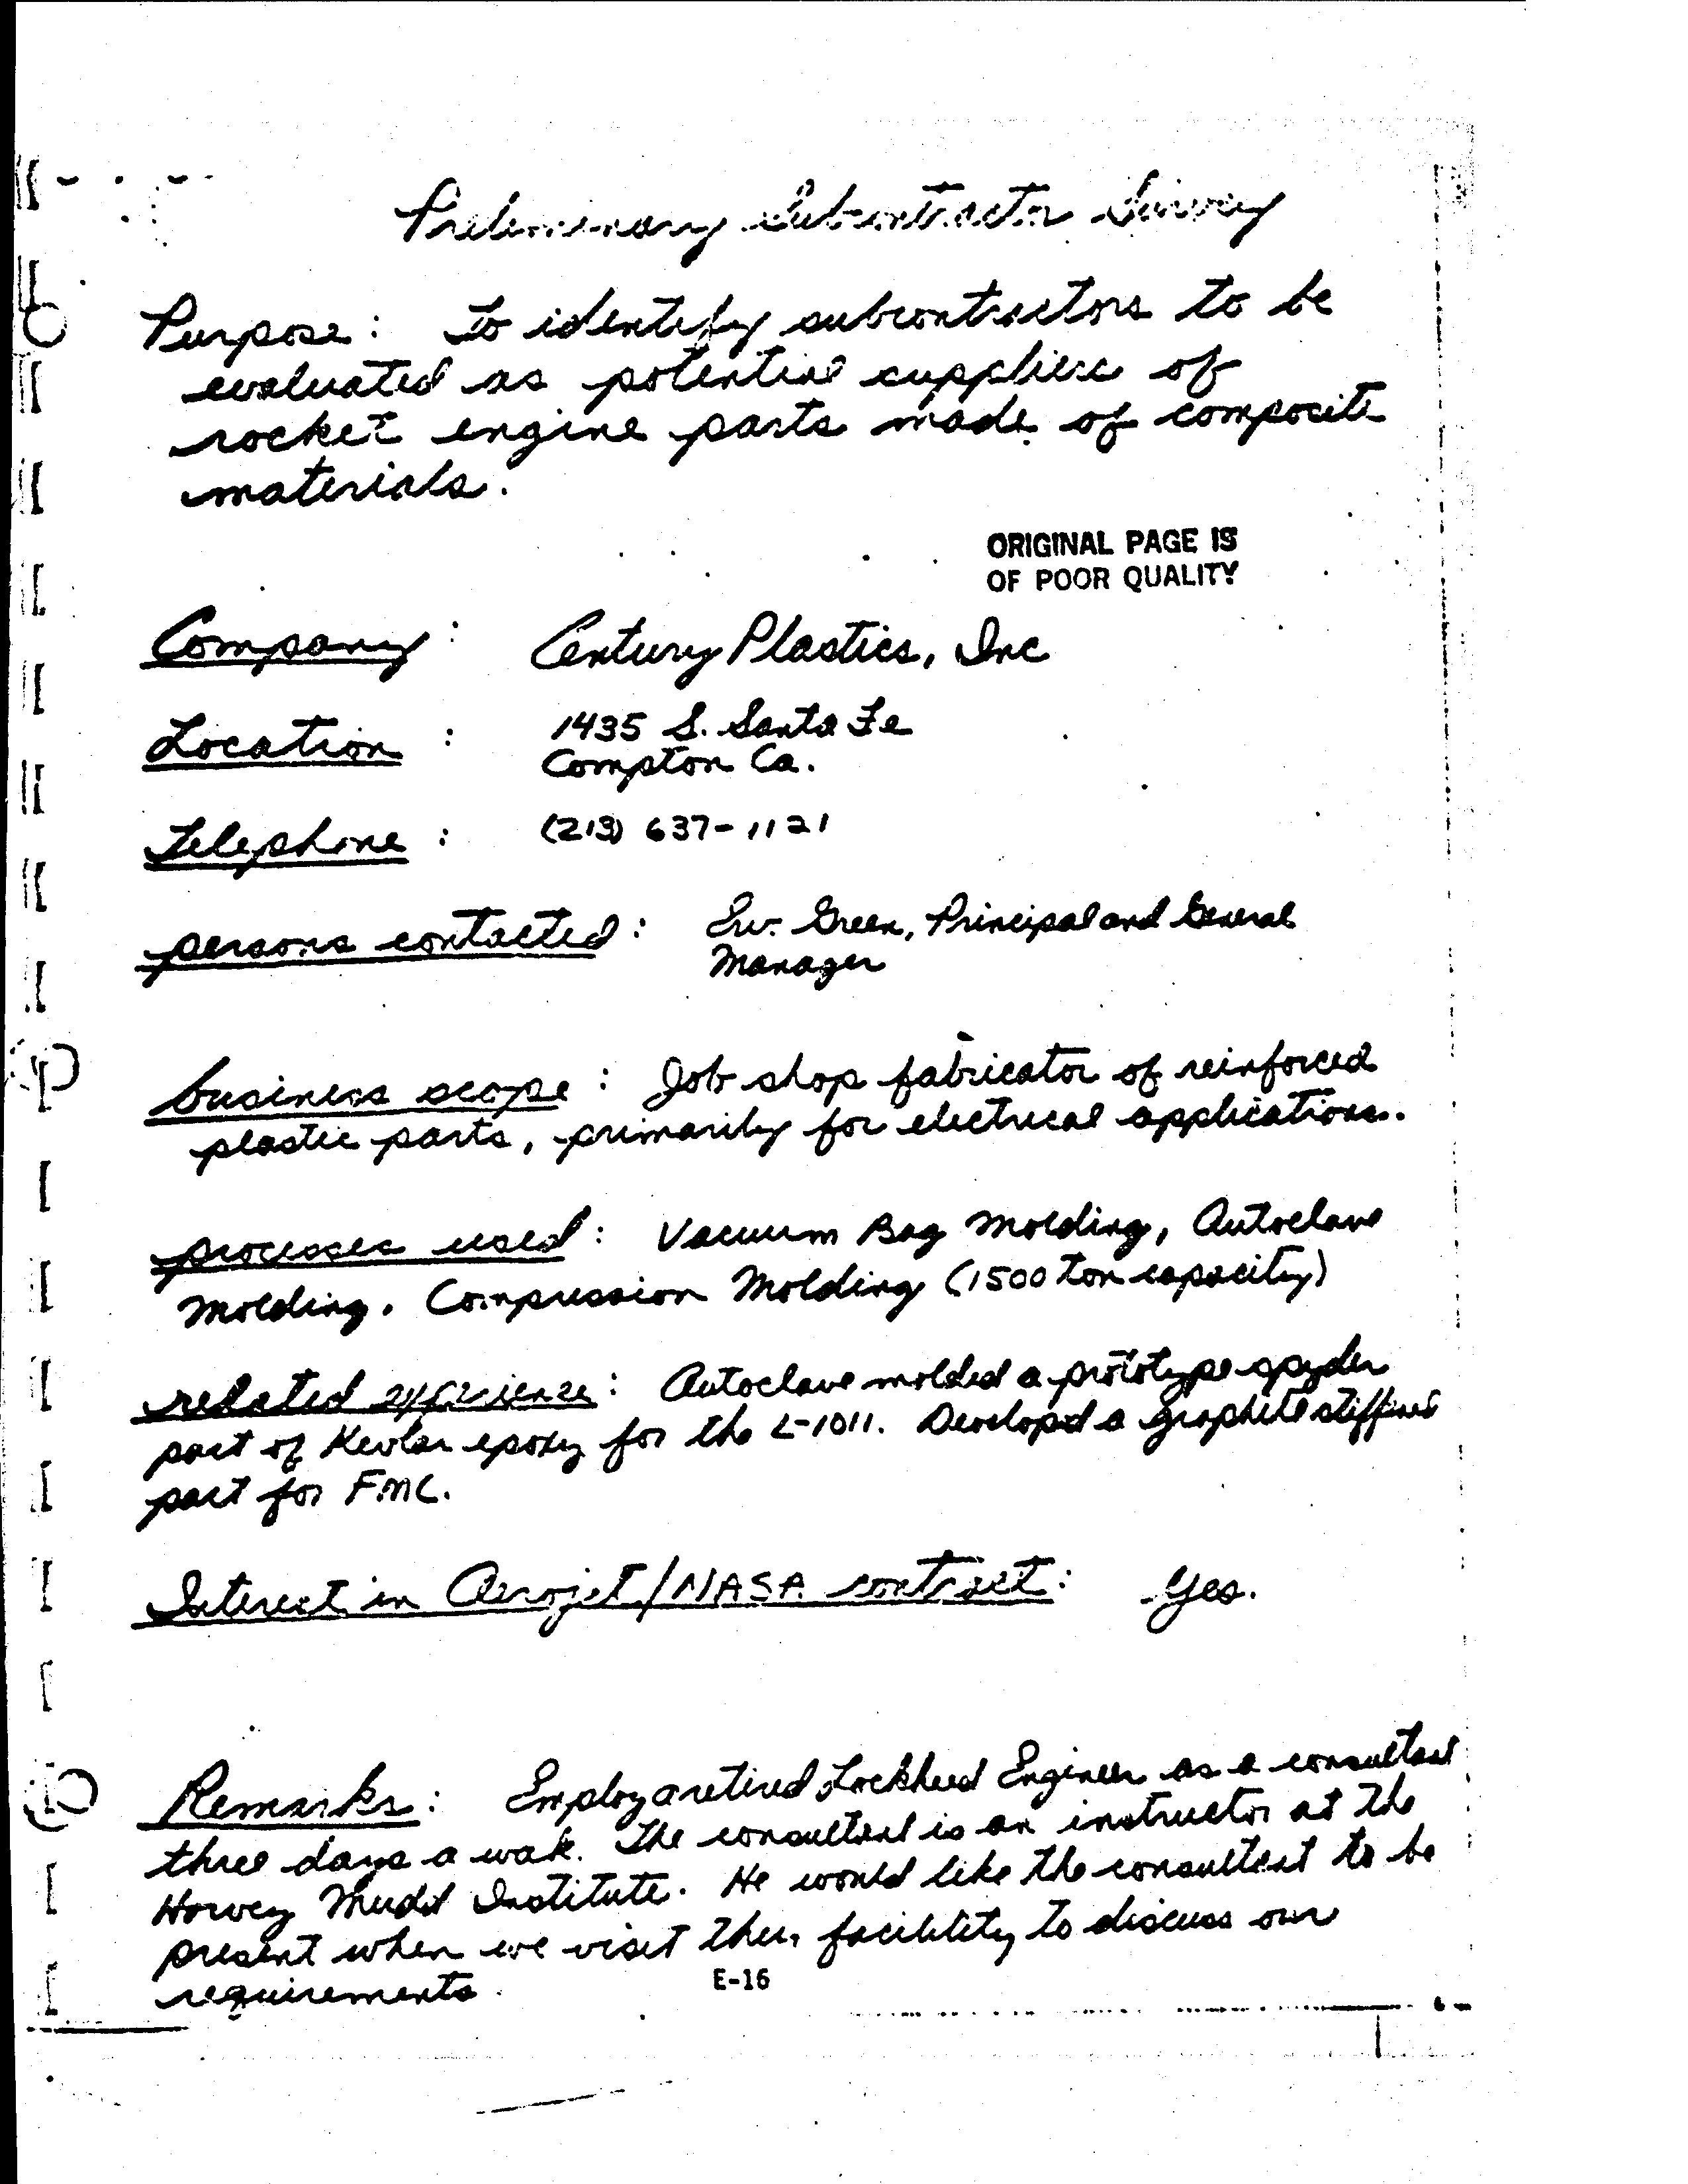 Preliminary Subcontractor Survey
Purpose: To identify subcontractors to be
evaluated as potential suppliers of
rocket engine parts made of composite
materials.
ORIGINAL PAGE IS
OF POOR QUALITY
Company: Century Plastics, Inc
Location: 1435 S. Santa Fe
Compton Ca.
Telephone: (213) 637-1121
persons contacted: Irv. Green, Principal and General
Manager
business scope: Job shop fabricator of reinforced
plastic parts, primarily for electrical applications.
processes used: Vacuum Bag Molding, Autoclave
Molding. Compression Molding (1500 Ton capacity)
related experience: Autoclave molded a prototype spyder
part of Kevlar epoxy for the L-1011. Developed a graphite
part for FMC.
Interest in Aerojet/NASA contract: Yes.
Remarks: Employ a retired Lockheed Engineer as a consultant
three days a week. The consultant is an instructor at the
Harvey Mudd Institute. He would like the consultant to be
present when we visit their facility to discuss our
requirements.
E-16